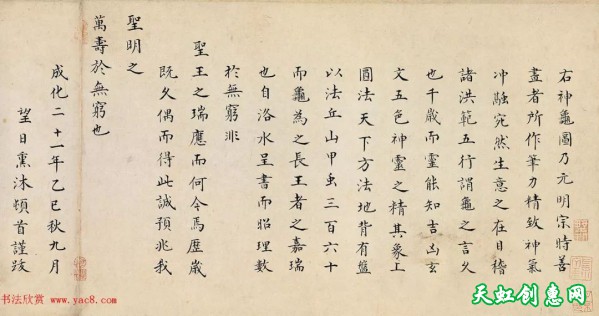 右神龜圖乃元明宗時善
畫者所作筆力精致神氣
冲融宛然生意之在目稽
諸洪範五行謂龜之言久
也千歲而靈能知吉凶玄
文五色神靈之精其象上
圓法天下方法地背有盤
以法丘山甲虫三百六十
而龜為之長王者之嘉瑞
也自洛水呈書而昭理數
於無窮非
聖王之瑞應而何今焉歷歲
既久偶而得此誠預兆我
聖明之
萬壽於無窮也
成化二十一年乙巳秋九月
望日熏沐頓首謹跋
书法欣赏 www.yac8.com
天虹创惠网